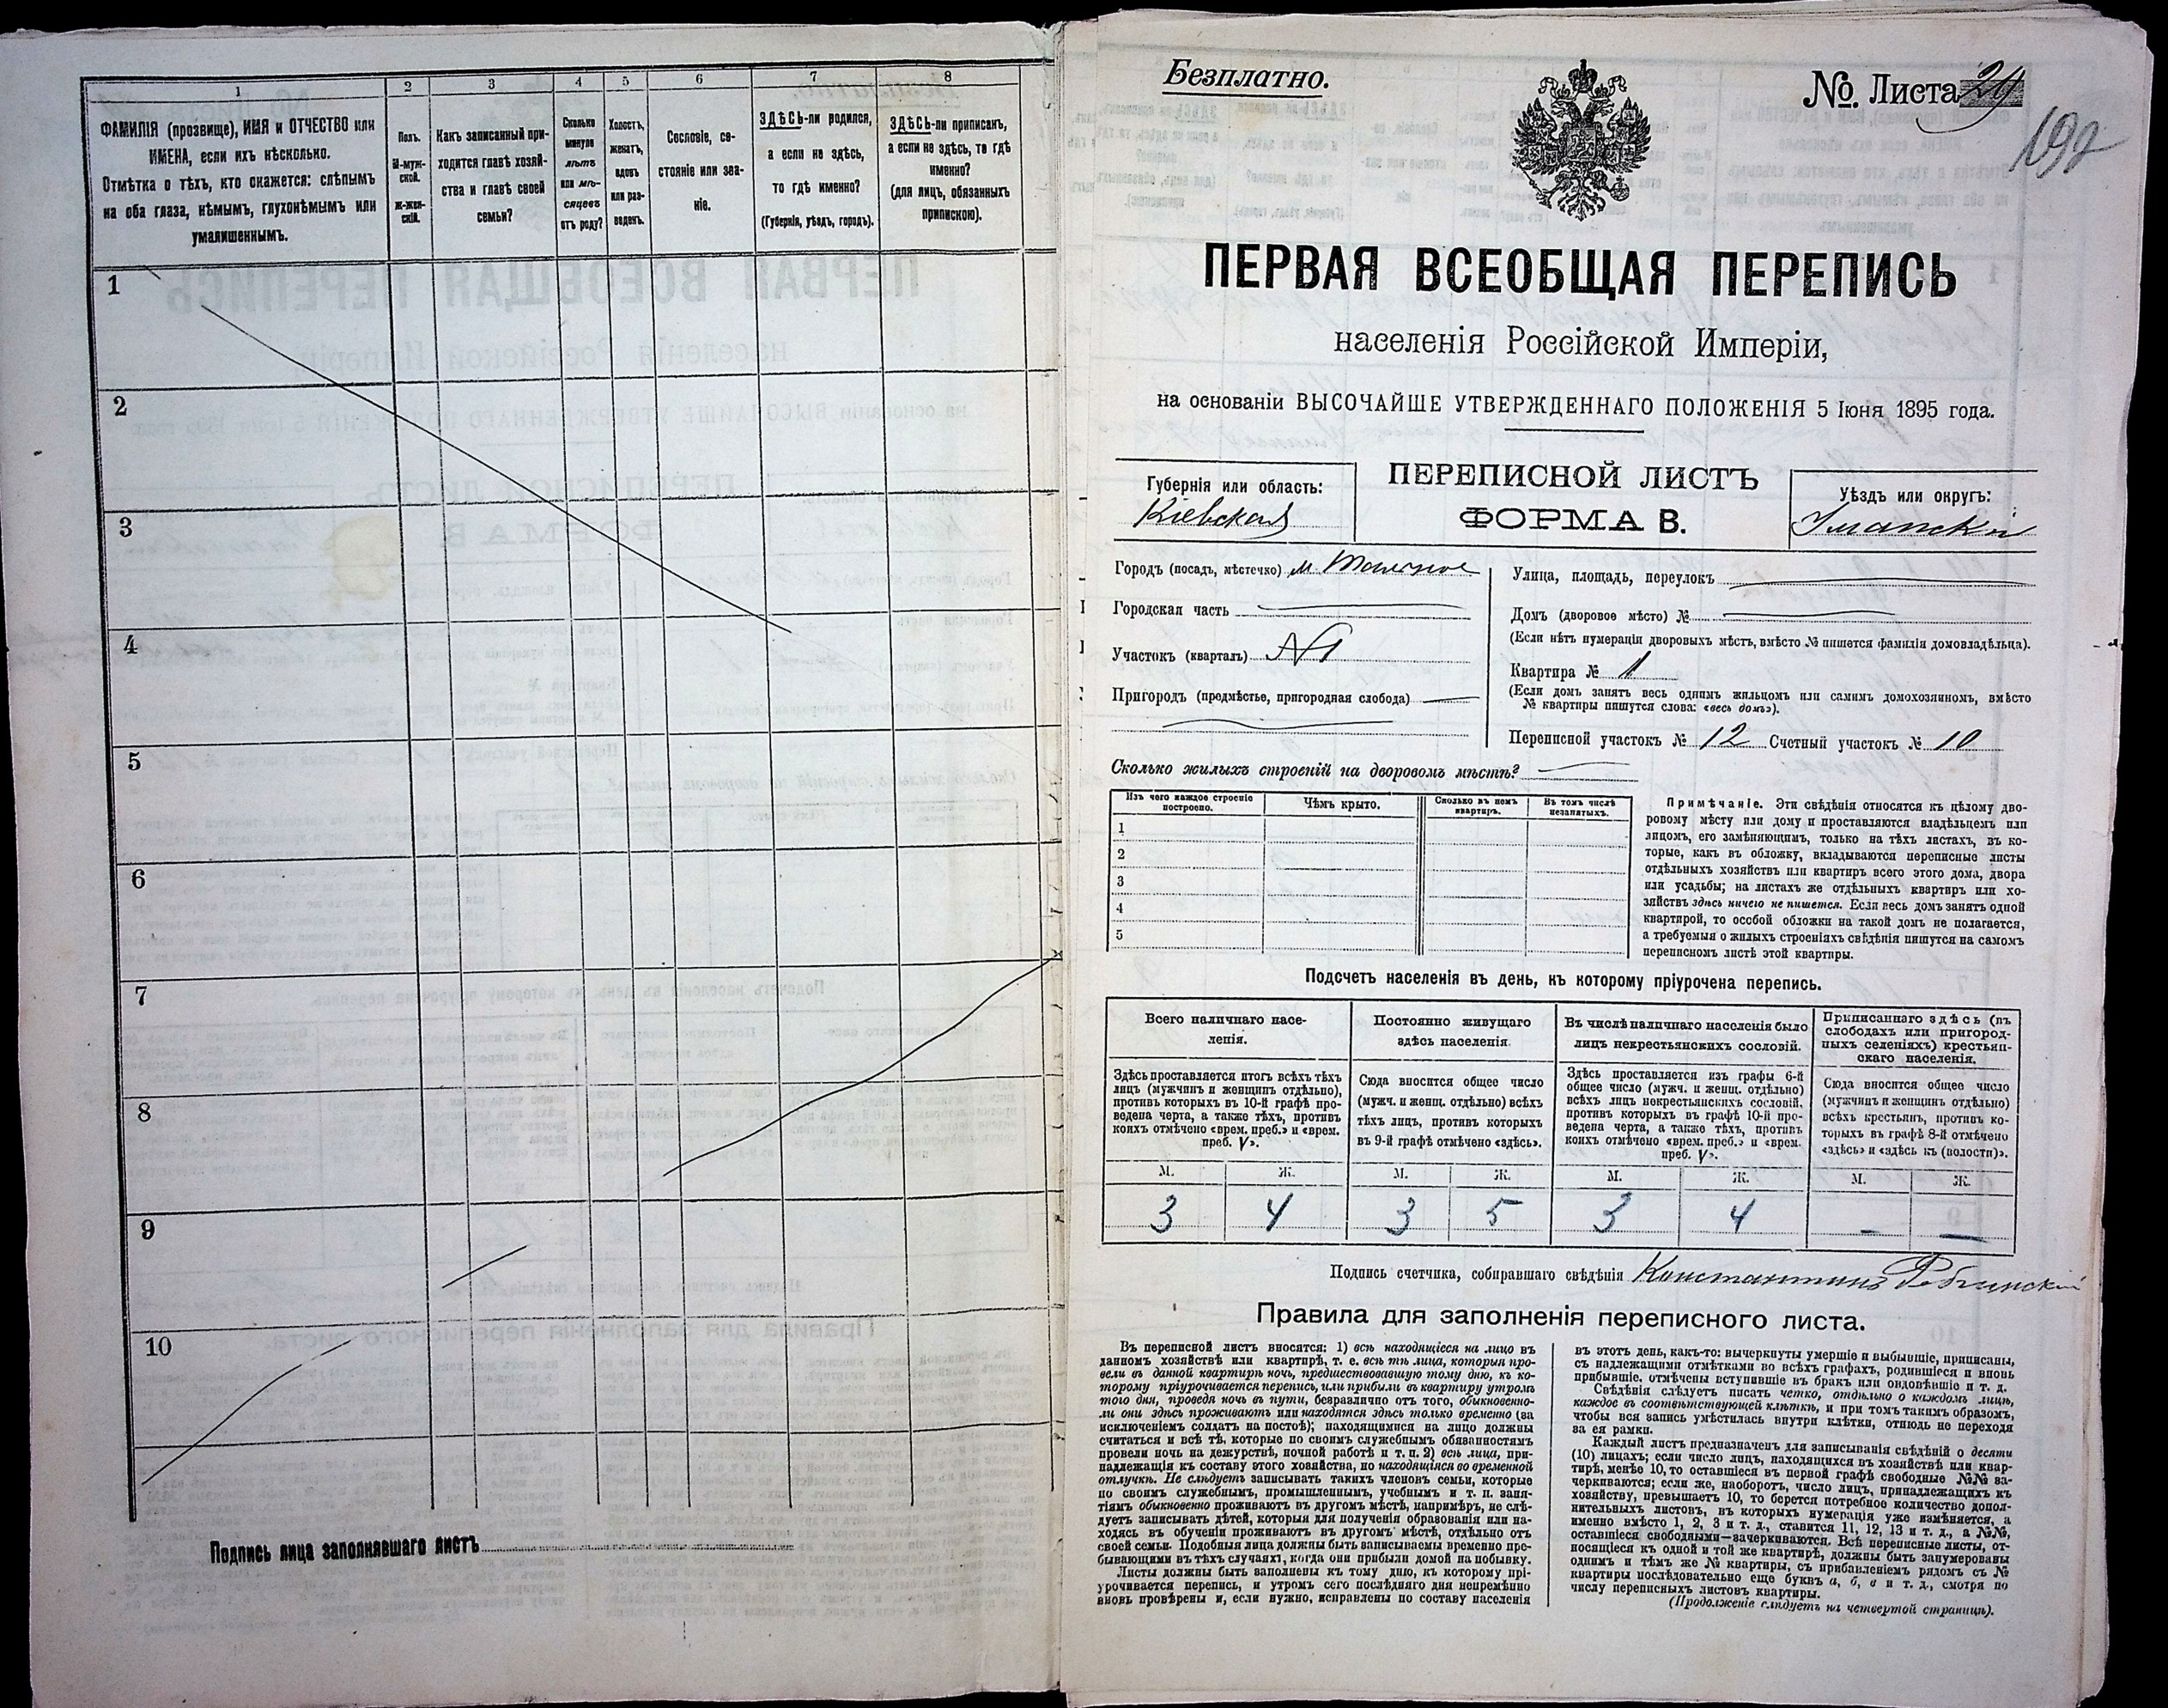 1 2 3 4 5 6 7 8
ФАМИЛІЯ (прозвище), ИМЯ и ОТЧЕСТВО или
ИМЕНА, если ихъ нѣсколько.
Отмѣтка о тѣхъ, кто окажется: слѣпымъ
на оба глаза, нѣмымъ, глухонѣмымъ или
умалишеннымъ.
Полъ.
М-муж-
ской.
Ж-жен-
скій.
Какъ записанный при-
ходится главѣ хозяй-
ства и главѣ своей
семьи?
Сколько
минуло
лѣтъ
или мѣ-
сяцевъ
отъ роду?
Холостъ,
женатъ,
вдовъ
или раз-
веденъ.
Сословіе, со-
стояніе или зва-
ніе.
ЗДѢСЬ-ли родился,
а если не здѣсь,
то гдѣ именно?
(Губернія, уѣздъ, городъ).
ЗДѢСЬ-ли приписанъ,
а если не здѣсь, то гдѣ
именно?
(для лицъ, обязанныхъ
припискою).
1
2
3
4
5
6
7
8
9
10
Подпись лица заполнявшаго листъ
Безплатно.
№. Листа 29
ПЕРВАЯ ВСЕОБЩАЯ ПЕРЕПИСЬ
населенія Россійской Имперіи,
на основаніи ВЫСОЧАЙШЕ УТВЕРЖДЕННАГО ПОЛОЖЕНІЯ 5 Іюня 1895 года.
Губернія или область:
Кіевская
ПЕРЕПИСНОЙ ЛИСТЪ
ФОРМА В.
Уѣздъ или округъ:
Уманскій
Городъ (посадъ, мѣстечко) м. Тальное
Городская часть
Участокъ (кварталъ) №1
Пригородъ (предмѣстье, пригородная слобода)
Улица, площадь, переулокъ
Домъ (дворовое мѣсто) №
(Если нѣтъ нумераціи дворовыхъ мѣстъ, вмѣсто № пишется фамилія домовладѣльца).
Квартира № 1
(Если домъ занятъ весь однимъ жильцомъ или самимъ домохозяиномъ, вмѣсто
№ квартиры пишутся слова: «весь домъ»).
Переписной участокъ № 12 Счетный участокъ № 10
Сколько жилыхъ строеній на дворовомъ мѣстѣ?
Изъ чего каждое строеніе
построено.
Чѣмъ крыто.
Сколько въ немъ
квартиръ.
Въ томъ числѣ
незанятыхъ.
1
2
3
4
5
Примѣчаніе. Эти свѣдѣнія относятся къ цѣлому дво-
ровому мѣсту или дому и проставляются владѣльцемъ или
лицомъ, его замѣняющимъ, только на тѣхъ листахъ, въ ко-
торые, какъ въ обложку, вкладываются переписные листы
отдѣльныхъ хозяйствъ или квартиръ всего этого дома, двора
или усадьбы; на листахъ же отдѣльныхъ квартиръ или хо-
зяйствъ здѣсь ничего не пишется. Если весь домъ занятъ одной
квартирой, то особой обложки на такой домъ не полагается,
а требуемыя о жилыхъ строеніяхъ свѣдѣнія пишутся на самомъ
переписномъ листѣ этой квартиры.
Подсчетъ населенія въ день, къ которому пріурочена перепись.
Всего наличнаго насе-
ленія.
Здѣсь проставляется итогъ всѣхъ тѣхъ
лицъ (мужчинъ и женщинъ отдѣльно),
противъ которыхъ въ 10-й графѣ про-
ведена черта, а также тѣхъ, противъ
коихъ отмѣчено «врем. преб.» и «врем.
преб. V».
Постоянно живущаго
здѣсь населенія.
Сюда вносится общее число
(мужч. и женщ. отдѣльно) всѣхъ
тѣхъ лицъ, противъ которыхъ
въ 9-й графѣ отмѣчено «здѣсь».
Въ числѣ наличнаго населенія было
лицъ некрестьянскихъ сословій.
Здѣсь проставляется изъ графы 6-й
общее число (мужч. и женщ. отдѣльно)
всѣхъ лицъ некрестьянскихъ сословій,
противъ которыхъ въ графѣ 10-й про-
ведена черта, а также тѣхъ, противъ
коихъ отмѣчено «врем. преб.» и «врем.
преб. V».
Приписаннаго здѣсь (въ
слободахъ или пригород-
ныхъ селеніяхъ) крестьян-
скаго населенія.
Сюда вносится общее число
(мужчинъ и женщинъ отдѣльно)
всѣхъ крестьянъ, противъ ко-
торыхъ въ графѣ 8-й отмѣчено
«здѣсь» и «здѣсь къ (волости)».
М. Ж. М. Ж. М. Ж. М. Ж.
3 4 3 5 3 4 — —
Подпись счетчика, собиравшаго свѣдѣнія Константинъ
Правила для заполненія переписного листа.
Въ переписной листъ вносятся: 1) всѣ находящіеся на лицо въ
данномъ хозяйствѣ или квартирѣ, т. е. всѣ тѣ лица, которыя про-
вели въ данной квартирѣ ночь, предшествовавшую тому дню, къ ко-
торому пріурочивается перепись, или прибыли въ квартиру утромъ
того дня, проведя ночь въ пути, безразлично отъ того, обыкновенно-
ли они здѣсь проживаютъ или находятся здѣсь только временно (за
исключеніемъ солдатъ на постоѣ); находящимися на лицо должны
считаться и всѣ тѣ, которые по своимъ служебнымъ обязанностямъ
провели ночь на дежурствѣ, ночной работѣ и т. п. 2) всѣ лица, при-
надлежащія къ составу этого хозяйства, но находящіяся во временной
отлучкѣ. Не слѣдуетъ записывать такихъ членовъ семьи, которые
по своимъ служебнымъ, промышленнымъ, учебнымъ и т. п. заня-
тіямъ обыкновенно проживаютъ въ другомъ мѣстѣ, напримѣръ, не слѣ-
дуетъ записывать дѣтей, которыя для полученія образованія или на-
ходясь въ обученіи проживаютъ въ другомъ мѣстѣ, отдѣльно отъ
своей семьи. Подобныя лица должны быть записываемы временно пре-
бывающими въ тѣхъ случаяхъ, когда они прибыли домой на побывку.
Листы должны быть заполнены къ тому дню, къ которому прі-
урочивается перепись, и утромъ сего послѣдняго дня непремѣнно
вновь провѣрены и, если нужно, исправлены по составу населенія
въ этотъ день, какъ-то: вычеркнуты умершіе и выбывшіе, приписаны,
съ надлежащими отмѣтками во всѣхъ графахъ, родившіеся и вновь
прибывшіе, отмѣчены вступившіе въ бракъ или овдовѣвшіе и т. д.
Свѣдѣнія слѣдуетъ писать четко, отдѣльно о каждомъ лицѣ,
каждое въ соотвѣтствующей клѣткѣ, и при томъ такимъ образомъ,
чтобы вся запись умѣстилась внутри клѣтки, отнюдь не переходя
за ея рамки.
Каждый листъ предназначенъ для записыванія свѣдѣній о десяти
(10) лицахъ; если число лицъ, находящихся въ хозяйствѣ или квар-
тирѣ, менѣе 10, то оставшіеся въ первой графѣ свободные №№ за-
черкиваются; если же, наоборотъ, число лицъ, принадлежащихъ къ
хозяйству, превышаетъ 10, то берется потребное количество допол-
нительныхъ листовъ, въ которыхъ нумерація уже измѣняется, а
именно вмѣсто 1, 2, 3 и т. д., ставится 11, 12, 13 и т. д., а №№,
оставшіеся свободными—зачеркиваются. Всѣ переписные листы, от-
носящіеся къ одной и той же квартирѣ, должны быть занумерованы
однимъ и тѣмъ же № квартиры, съ прибавленіемъ рядомъ съ №
квартиры послѣдовательно еще буквъ а, б, в и т. д., смотря по
числу переписныхъ листовъ квартиры.
(Продолженіе слѣдуетъ на четвертой страницѣ).